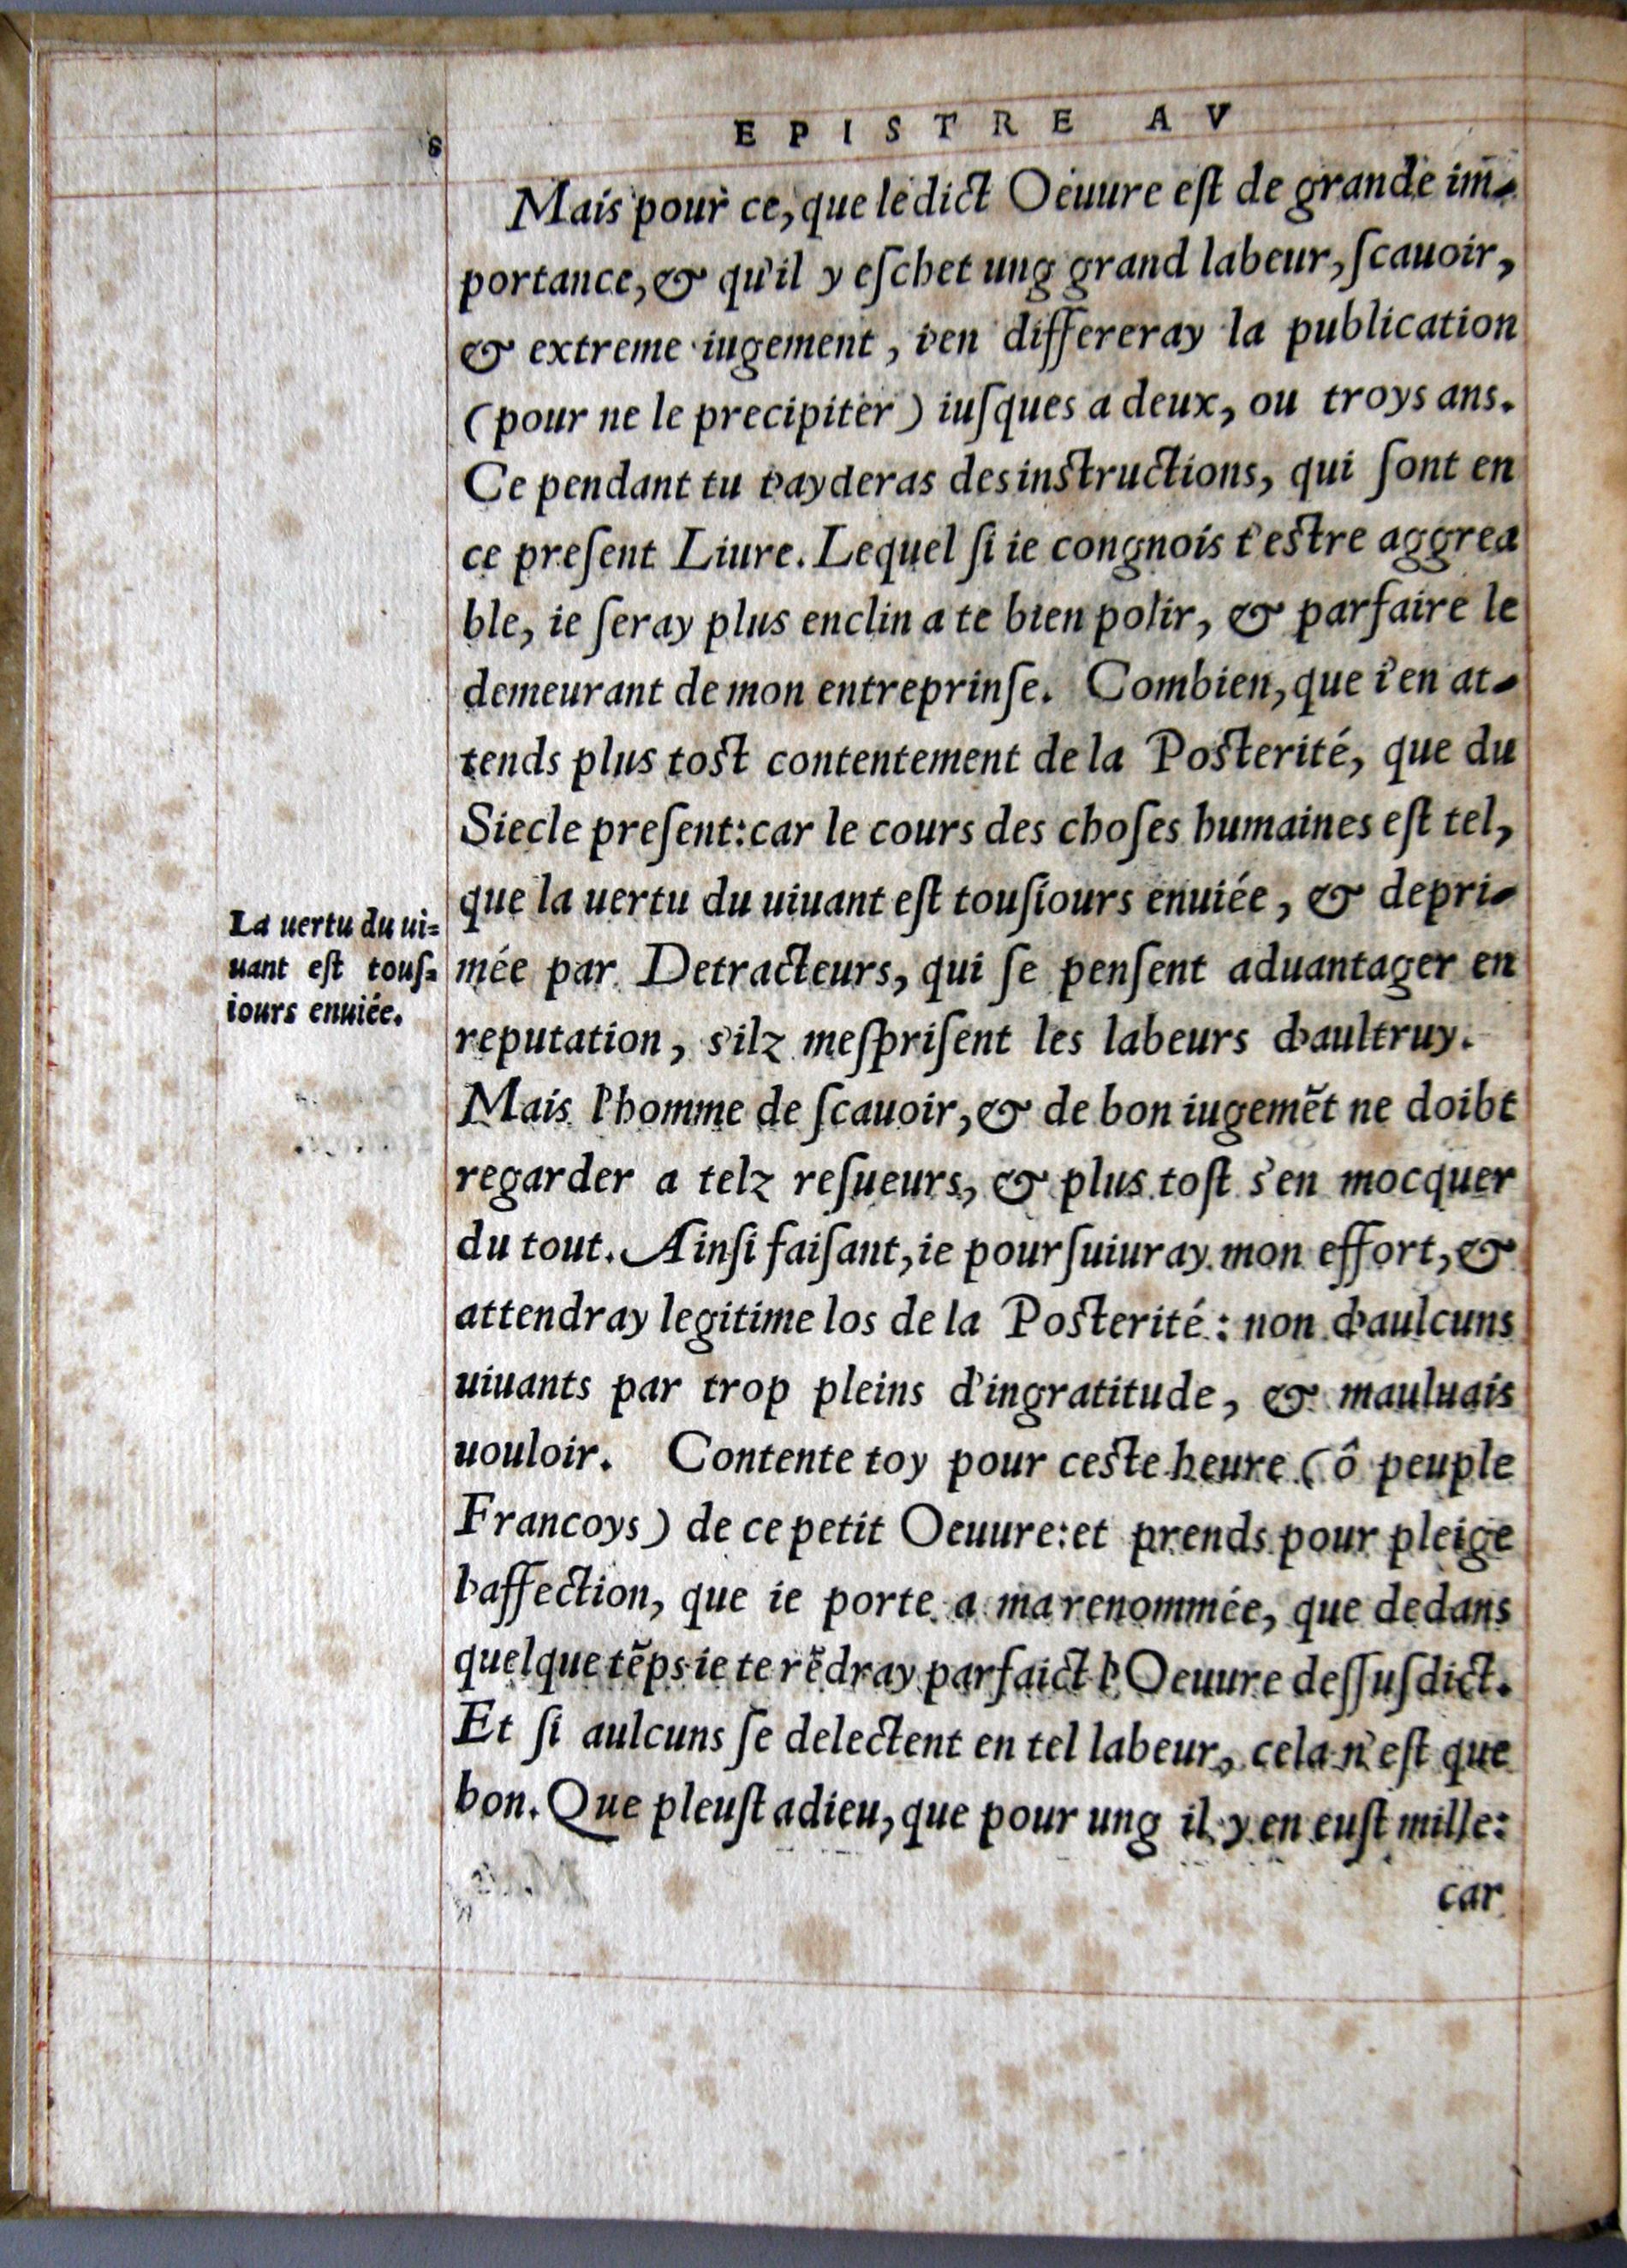 8
EPISTRE AV
Mais pour ce, que ledict Oeuure eſt de grande im-
portance, & qu'il y eſchet ung grand labeur, ſcauoir,
& extreme iugement, i'en differeray la publication
(pour ne le precipiter) iuſques a deux, ou troys ans.
Ce pendant tu t'ayderas des instructions, qui ſont en
ce preſent Liure. Lequel ſi ie congnois t'estre aggrea
ble, ie ſeray plus enclin a te bien polir, & parfaire le
demeurant de mon entreprinſe. Combien, que i'en at-
tends plus tost contentement de la Posterité, que du
Siecle preſent: car le cours des choſes humaines eſt tel,
que la uertu du uiuant eſt touſiours enuiée, & depri-
mée par Detracteurs, qui ſe penſent aduantager en
reputation, s'ilz meſpriſent les labeurs d'aultruy.
Mais l'homme de ſcauoir, & de bon iugemẽt ne doibt
regarder a telz reſueurs, & plus toſt s'en mocquer
du tout. Ainſi faiſant, ie pourſuiuray mon effort, &
attendray legitime los de la Posterité: non d'aulcuns
uiuants par trop pleins d'ingratitude, & mauluais
uouloir. Contente toy pour ceste heure (ô peuple
Francoys) de ce petit Oeuure: et prends pour pleige
l'affection, que ie porte a ma renommée, que dedans
quelque tẽps ie te rẽdray parfaict l'Oeuure deſſuſdict.
Et ſi aulcuns ſe delectent en tel labeur, cela n'eſt que
bon. Que pleuſt adieu, que pour ung il y en euſt mille:
car
La uertu du ui=
uant eſt touſ=
iours enuiée.